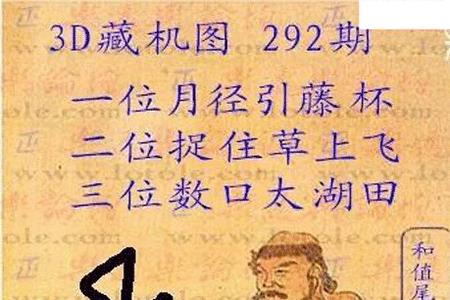 3D藏机图 292期
一位月径引藤杯
二位捉住草上飞
三位数口太湖田
和值尾
www.lotole.com